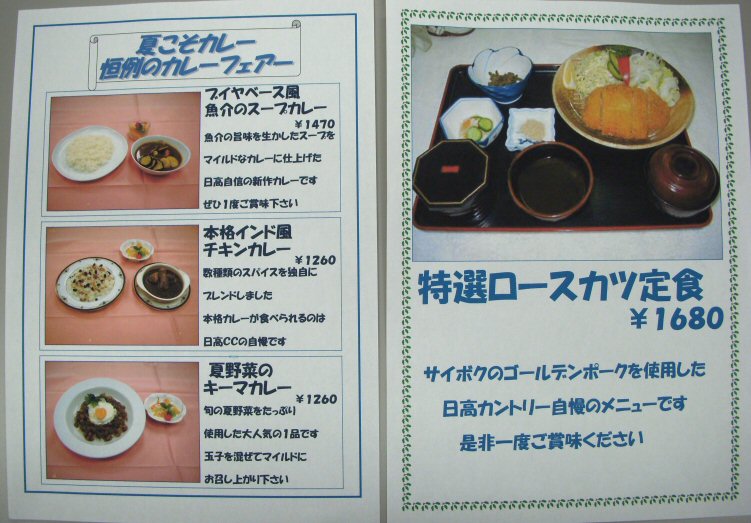 夏こそカレー
恒例のカレーフェアー
ブイヤベース風
魚介のスープカレー
￥1470
魚介の旨味を生かしたスープを
マイルドなカレーに仕上げた
日高自信の新作カレーです
ぜひ1度ご賞味下さい
本格インド風
チキンカレー
￥1260
数種類のスパイスを独自に
ブレンドしました
本格カレーが食べられるのは
日高CCの自慢です
夏野菜の
キーマカレー
￥1260
旬の夏野菜をたっぷり
使用した大人気の1品です
玉子を混ぜてマイルドに
お召し上がり下さい
特選ロースカツ定食
￥1680
サイボクのゴールデンポークを使用した
日高カントリー自慢のメニューです
是非一度ご賞味ください